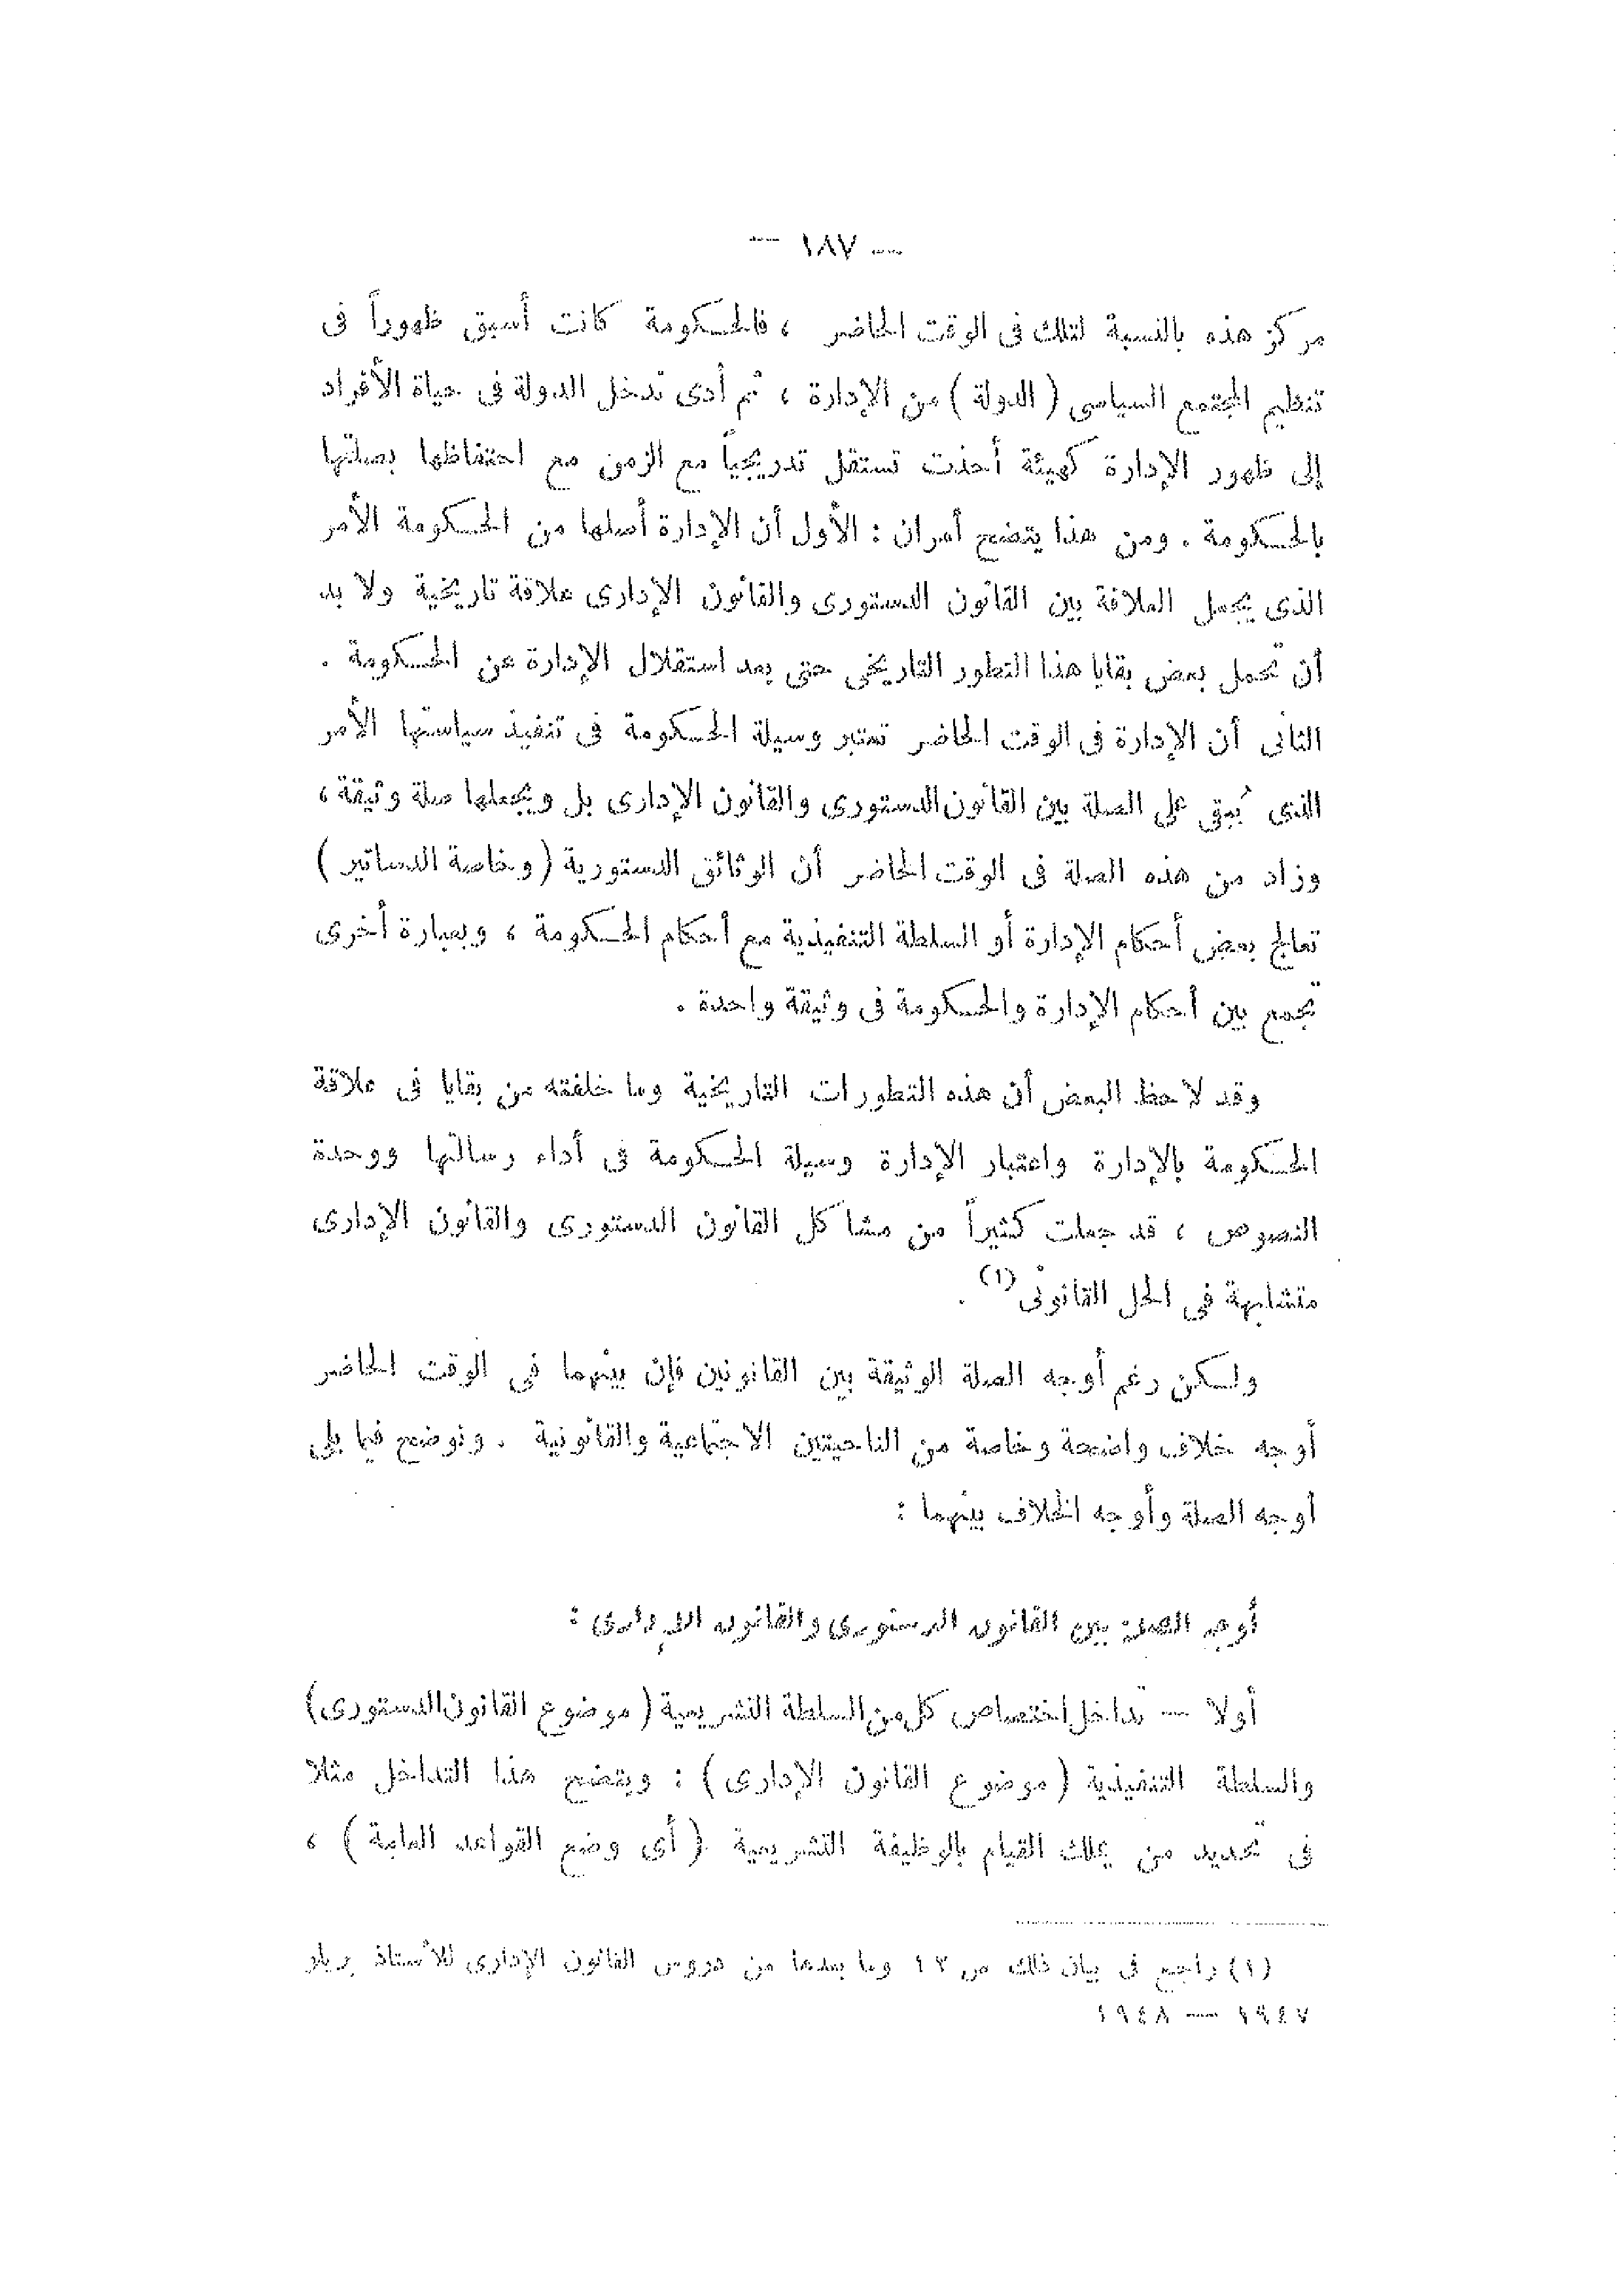 — ١٨٧ —
مركز هذه بالنسبة لتلك فى الوقت الحاضر ، فالحكومة كانت أسبق ظهوراً فى
تنظيم المجتمع السياسى ( الدولة ) من الإدارة ، ثم أدى تدخل الدولة فى حياة الأفراد
إلى ظهور الإدارة كهيئة أخذت تستقل تدريجياً مع الزمن مع احتفاظها بصلتها
بالحكومة . ومن هذا يتضح أمران : الأول أن الإدارة أصلها من الحكومة الأمر
الذى يجعل العلاقة بين القانون الدستورى والقانون الإدارى علاقة تاريخية ولا بد
أن تحمل بعض بقايا هذا التطور التاريخى حتى بعد استقلال الإدارة عن الحكومة .
الثانى أن الإدارة فى الوقت الحاضر تعتبر وسيلة الحكومة فى تنفيذ سياستها الأمر
الذى يُبقى على الصلة بين القانون الدستورى والقانون الإدارى بل ويجعلها صلة وثيقة ،
وزاد من هذه الصلة فى الوقت الحاضر أن الوثائق الدستورية ( وخاصة الدساتير )
تعالج بعض أحكام الإدارة أو السلطة التنفيذية مع أحكام الحكومة ، وبعبارة أخرى
تجمع بين أحكام الإدارة والحكومة فى وثيقة واحدة .
وقد لاحظ البعض أن هذه التطورات التاريخية وما خلفته من بقايا فى علاقة
الحكومة بالإدارة واعتبار الإدارة وسيلة الحكومة فى أداء رسالتها ووحدة
النصوص ، قد جعلت كثيراً من مشاكل القانون الدستورى والقانون الإدارى
متشابهة فى الحل القانونى (١) .
ولكن رغم أوجه الصلة الوثيقة بين القانونين فإن بينهما فى الوقت الحاضر
أوجه خلاف واضحة وخاصة من الناحيتين الاجتماعية والقانونية . ونوضح فيما يلى
أوجه الصلة وأوجه الخلاف بينهما :
أوجه الصلة بين القانون الدستورى والقانون الإدارى :
أولا — تداخل اختصاص كل من السلطة التشريعية ( موضوع القانون الدستورى )
والسلطة التنفيذية ( موضوع القانون الإدارى ) : ويتضح هذا التداخل مثلا
فى تحديد من يملك القيام بالوظيفة التشريعية ( أى وضع القواعد العامة ) ،
(١) راجع فى بيان ذلك ص ١٣ وما بعدها من دروس القانون الإدارى للأستاذ ريلر
١٩٤٧ — ١٩٤٨